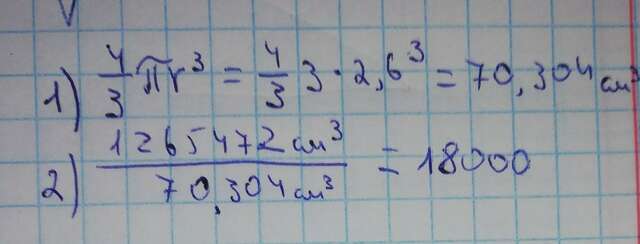 1) 4/3 πr³ = 4/3 3·2,6³ = 70,304 см³
2) 1265472 см³ / 70,304 см³ = 18000